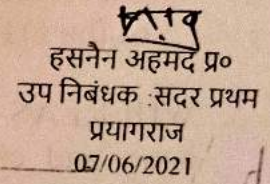 हसनैन अहमद प्र०
उप निबंधक :सदर प्रथम
प्रयागराज
07/06/2021